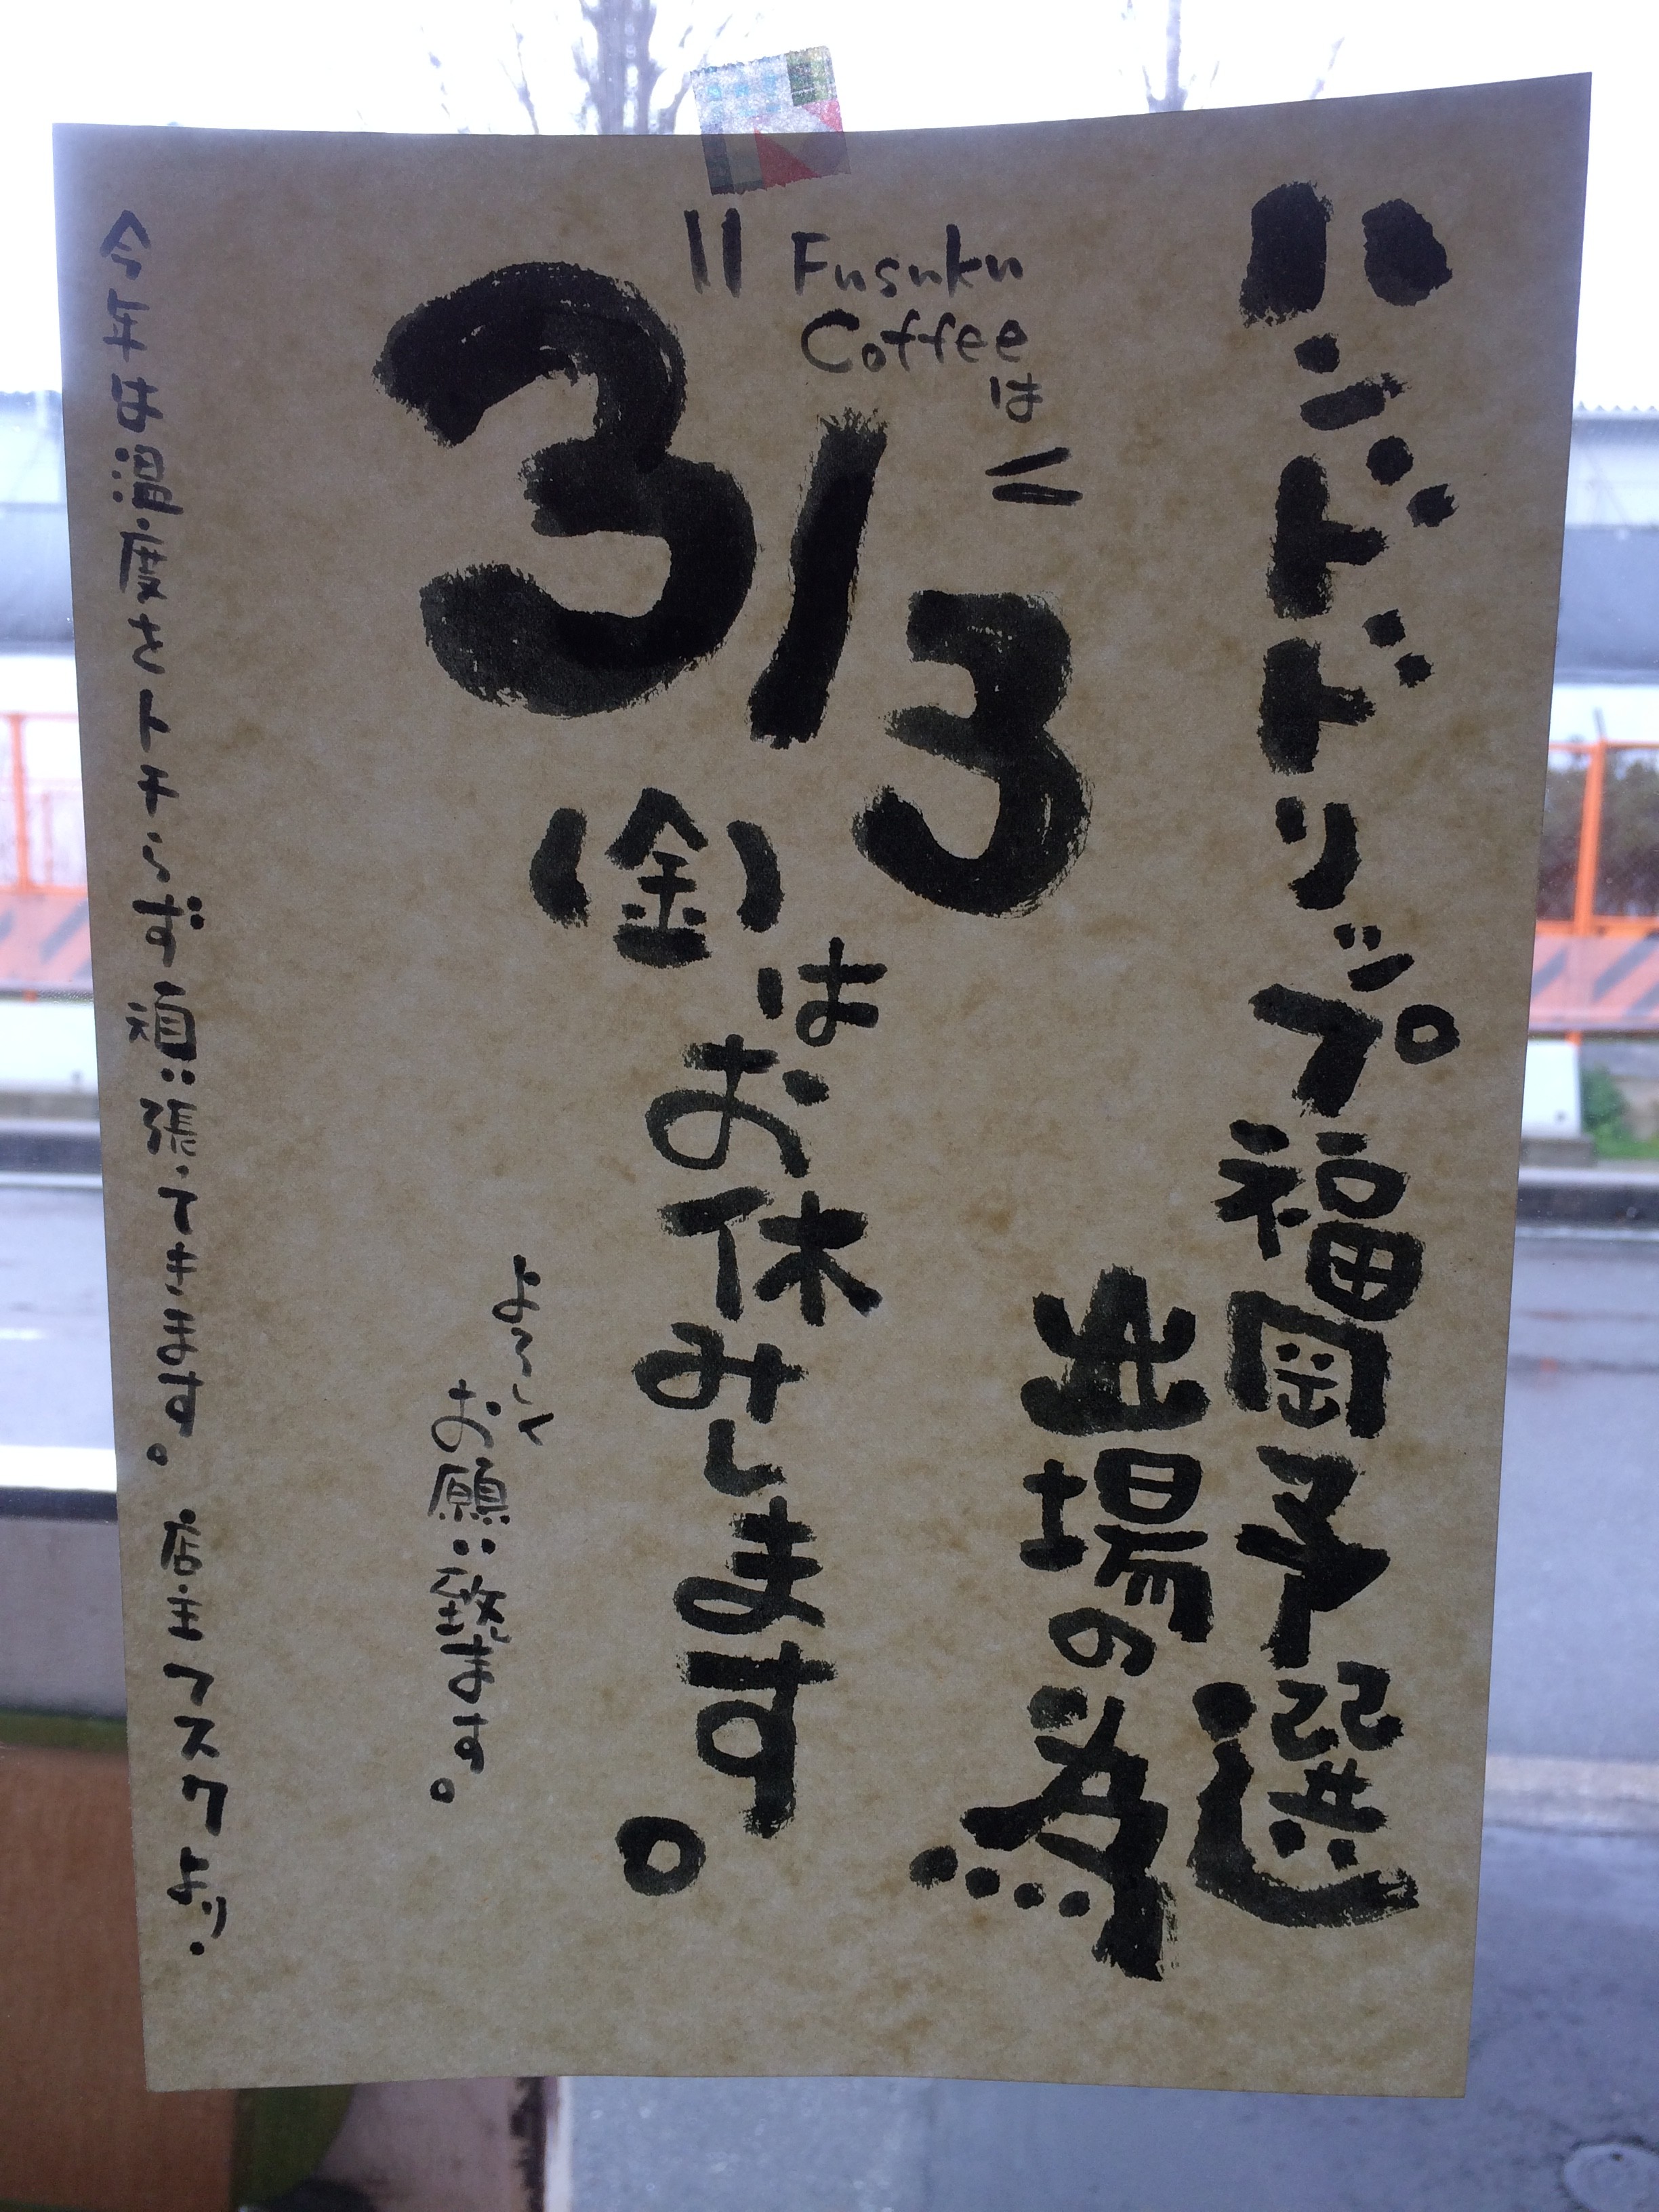 ハンドドリップ福岡予選
出場の為
Fusuku
Coffee
は
3/3
(金)はお休みします。
よろしく
お願い致ます。
今年は温度をトチらず頑張ってきます。店主フスクより.